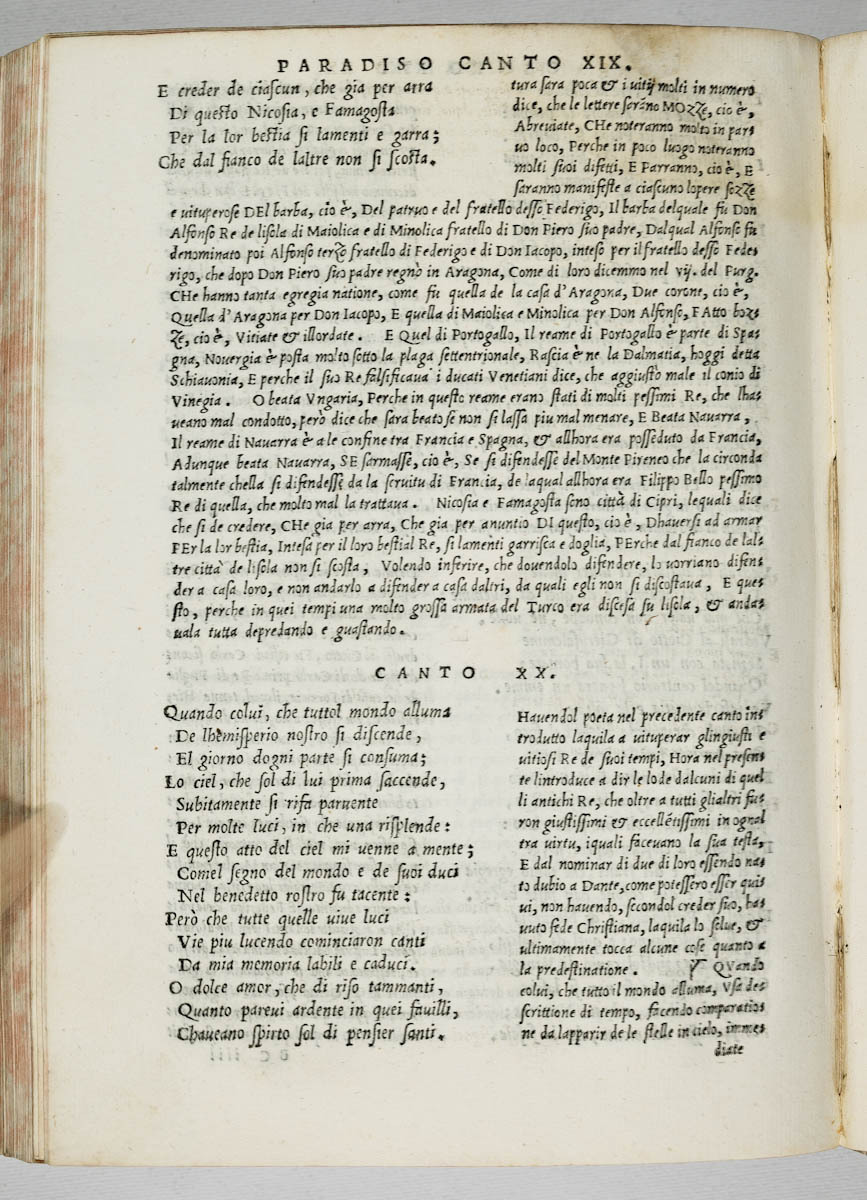 PARADISO CANTO XIX.
E creder de ciascun, che gia per arra
Di questo Nicosia, e Famagosta
Per la lor bestia si lamenti e garra;
Che dal fianco de laltre non si scosta.
tura sara poca & i uitij molti in numero
dice, che le lettere saranno MOZZE, cio è,
Abreviate, CHe noteranno molto in par
uo loco, Perche in poco luogo noteranno
molti suoi difetti, E Parranno, cio è, E
saranno manifeste a ciascuno lopere sozze
e uituperose DEl barba, cio è, Del patruo e del fratello desso Federigo, Il barba delquale fu Don
Alfonso Re de lisola di Maiolica e di Minolica fratello di Don Piero suo padre, Dalqual Alfonso fu
denominato poi Alfonso terzo fratello di Federigo e di Don Iacopo, inteso per il fratello desso Fede=
rigo, che dopo Don Piero suo padre regnò in Aragona, Come di loro dicemmo nel vij. del Purg.
CHe hanno tanta egregia natione, come fu quella de la casa d'Aragona, Due corone, cio è,
Quella d'Aragona per Don Iacopo, E quella di Maiolica e Minolica per Don Alfonso, FAtto boz=
ze, cio è, Vitiate & illordate. E Quel di Portogallo, Il reame di Portogallo è parte di Spa=
gna, Nouergia è posta molto sotto la plaga settentrionale, Rascia è ne la Dalmatia, hoggi detta
Schiauonia, E perche il suo Re falsificaua i ducati Venetiani dice, che aggiustò male il conio di
Vinegia. O beata Vngaria, Perche in questo reame erano stati di molti pessimi Re, che lha=
ueano mal condotto, però dice che sara beato se non si lassa piu mal menare, E Beata Nauarra,
Il reame di Nauarra è a le confine tra Francia e Spagna, & allhora era posseduto da Francia,
Adunque beata Nauarra, SE sarmasse, cio è, Se si difendesse del Monte Pireneo che la circonda
talmente chella si difendesse da la seruitu di Francia, de laqual allhora era Filippo Bello pessimo
Re di quella, che molto mal la trattaua. Nicosia e Famagosta sono città di Cipri, lequali dice
che si de credere, CHe gia per arra, Che gia per anuntio DI questo, cio è, Dhauersi ad armar
PEr la lor bestia, Intesa per il loro bestial Re, si lamenti garrisca e doglia, PErche dal fianco de lal=
tre città de lisola non si scosta, Volendo inferire, che douendola difendere, lo uorriano difen=
der a casa loro, e non andarlo a difender a casa daltri, da quali egli non si discostaua, E que=
sto, perche in quei tempi una molto grossa armata del Turco era discesa su lisola, & anda=
uala tutta depredando e guastando.
CANTO XX.
Quando colui, che tuttol mondo alluma
De lhemisperio nostro si discende,
El giorno dogni parte si consuma;
Lo ciel, che sol di lui prima saccende,
Subitamente si rifa paruente
Per molte luci, in che una risplende:
E questo atto del ciel mi uenne a mente;
Comel segno del mondo e de suoi duci
Nel benedetto rostro fu tacente:
Però che tutte quelle uiue luci
Vie piu lucendo cominciaron canti
Da mia memoria labili e caduci.
O dolce amor, che di riso tammanti,
Quanto pareui ardente in quei fauilli,
Chaueano spirto sol di pensier santi.
Hauendol poeta nel precedente canto in=
trodutto laquila a uituperar glingiusti e
uitiosi Re de suoi tempi, Hora nel presen=
te lintroduce a dir le lode dalcuni di quel
li antichi Re, che oltre a tutti glialtri fu=
ron giustissimi & eccellētissimi in ognal
tra uirtu, iquali faceuano la sua testa,
E dal nominar di due di loro essendo na=
to dubio a Dante, come potessero esser qui=
ui, non hauendo, secondol creder suo, ha=
uuto fede Christiana, laquila lo solue, &
ultimamente tocca alcune cose quanto a
la predestinatione. QVando
colui, che tutto il mondo alluma, Vsa de=
scrittione di tempo, facendo comparatio=
ne da lapparir de le stelle in cielo, imme=
diate